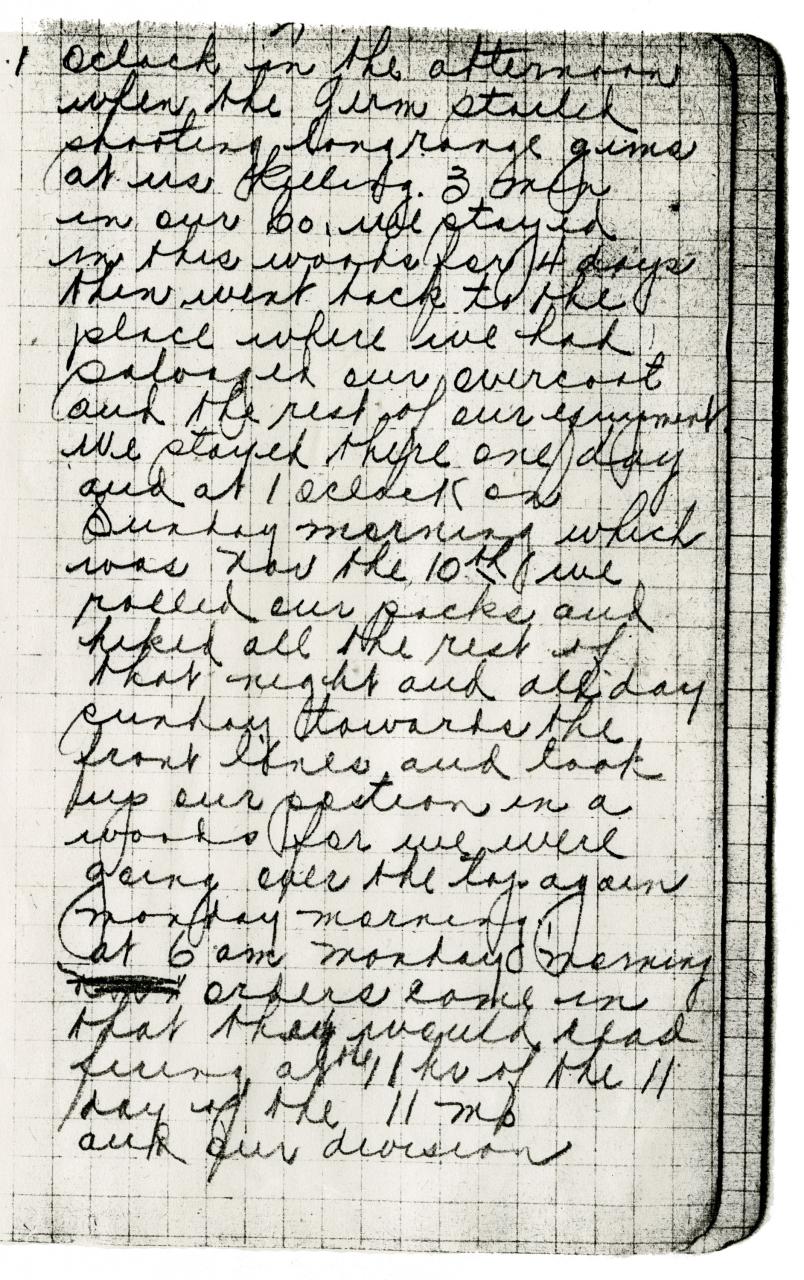 1 oclock in the afternoon
when the Germ started
shooting longrange guns
at us killing 3 men
in our Co. we stayed
in this woods for 4 days
then went back to the
place where we had
our overcoat
and the rest of our equipment
we stayed there one day
and at 1 oclock on
Sunday morning which
was Nov the 10th we
rolled our packs and
hiked all the rest of
that night and all day
sunday towards the
front lines and took
up our postion in a
woods for we were
going over the top again
monday morning.
at 6 am monday morning
orders come in
that they would
firing at the 11 hr of the 11
day of the 11 mo
and our division